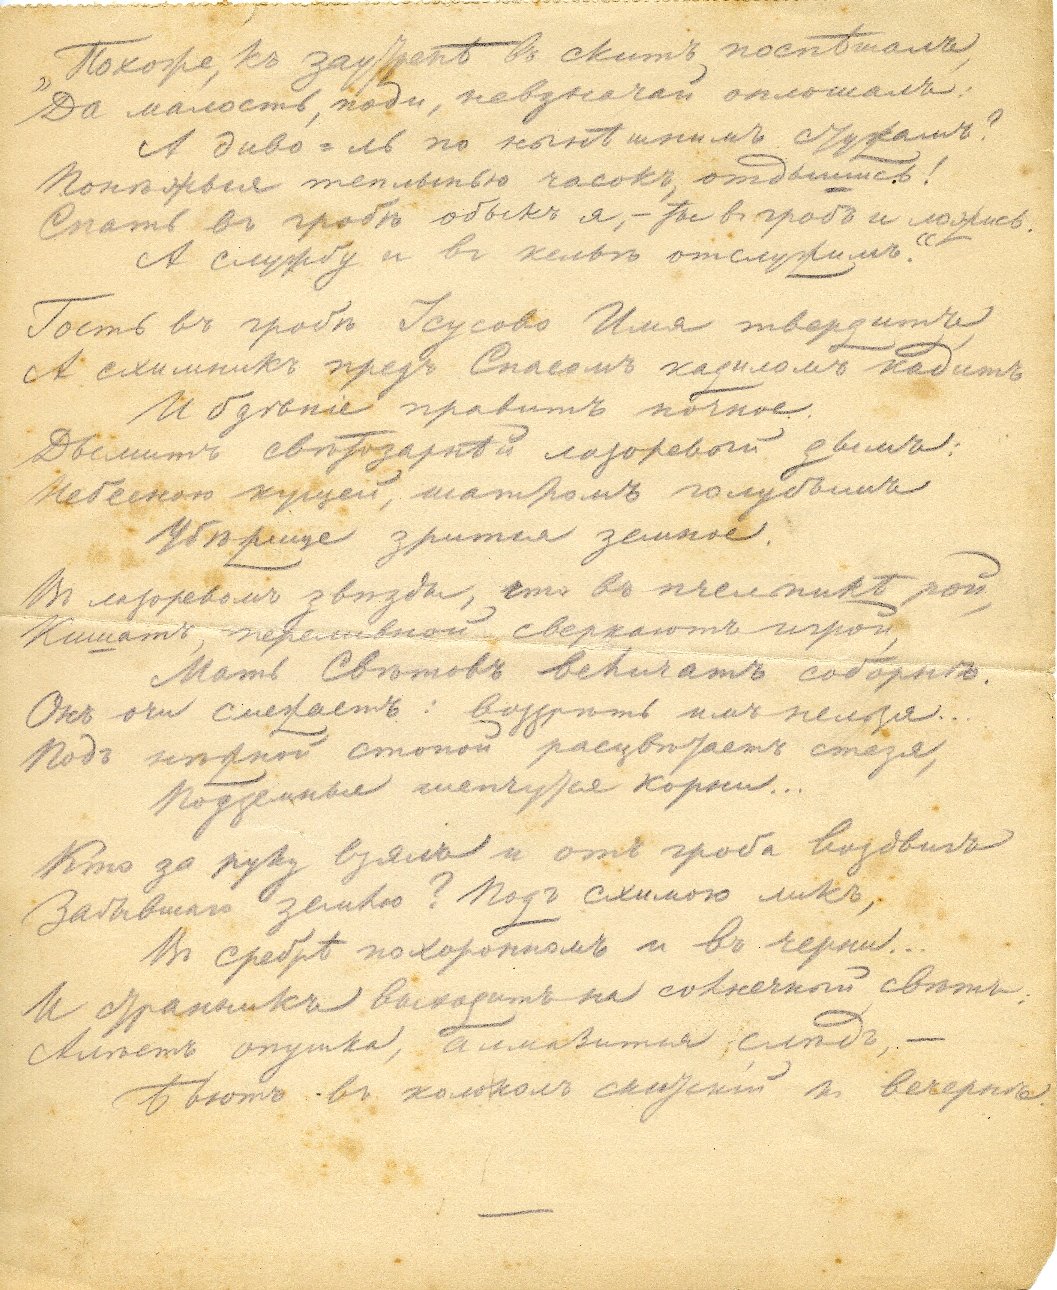 „Похоже, къ заутренѣ въ скитъ поспѣшалъ,
Да малость, поди, невзначай оплошалъ:
А диво-ль по нынѣшнимъ стужамъ?
Понѣжься теплынью часокъ, отдышись!
Спать въ гробѣ обыкъ я, – ты въ гробъ и ложись.
А службу и въ кельѣ отслужимъ.“
Гость въ гробѣ Ісусово Имя твердитъ,
А схимникъ предъ Спасомъ кадиломъ кадитъ
И бдѣніе правитъ ночное.
Дымитъ свѣтозарнѣй лазоревой дымъ:
Небесною кущей, шатромъ голубымъ
Убѣжище зрится земное.
Въ лазоревомъ звѣзды, что въ пчельникѣ рой,
Кишатъ, переливной сверкаютъ игрой,
Мать Свѣтовъ величатъ соборнѣ.
Онъ очи смежаетъ: воззрѣть имъ нельзя...
Подъ нѣжной стопой расцвѣтаетъ стезя,
Подземные шепчутся корни...
Кто за руку взялъ и отъ гроба воздвигъ
Забывшаго землю? Подъ схимою ликъ,
Въ сребрѣ похоронномъ и въ черни...
И странникъ выходитъ на солнечный свѣтъ:
Алѣетъ опушка, алмазится слѣдъ, –
Бьютъ въ колоколъ скитскій къ вечернѣ.